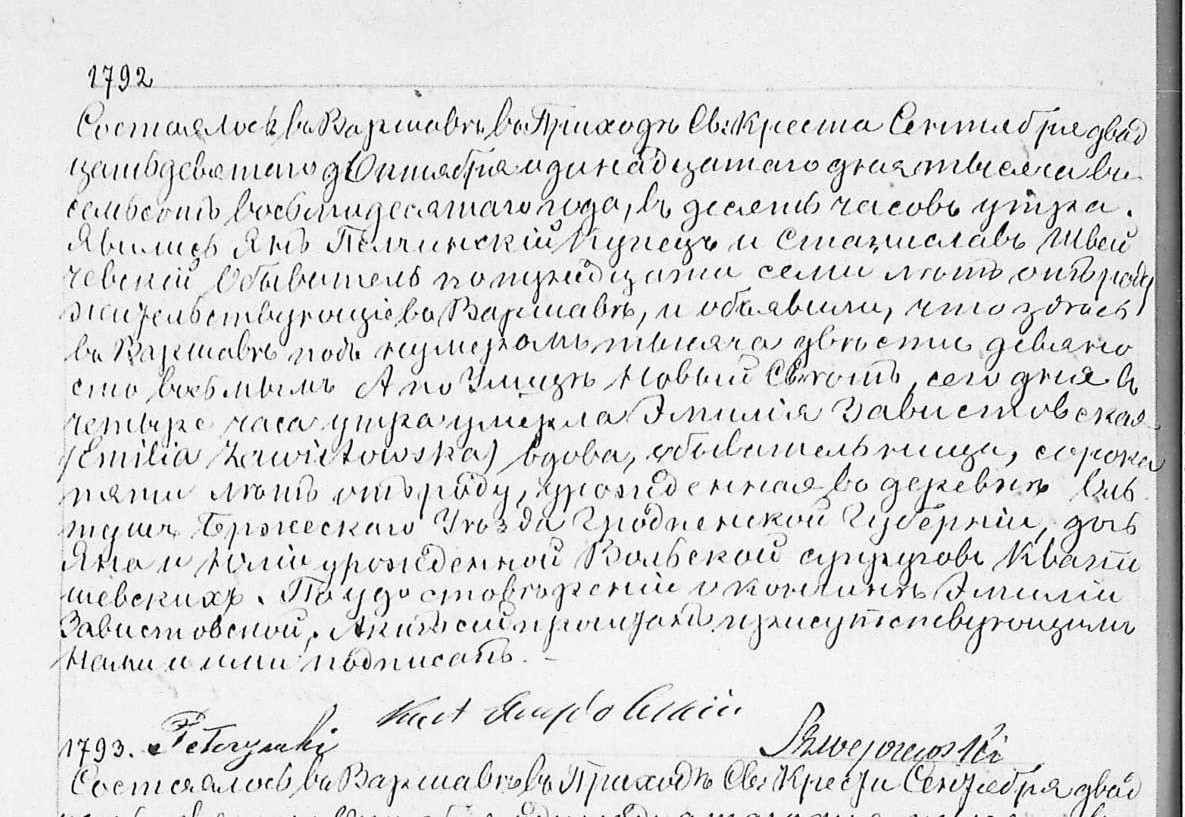 1792
Состоялось въ Варшавѣ въ Приходѣ Св: Креста Сентября двад
цать девятаго Октября одинадцатаго дня тысяча во
семьсотъ восьмидесятаго года, въ десять часовъ утра.
Явились Янъ Пельчинскій Купецъ и Станиславъ Швей
чевскій Обыватель по тридцати семи лѣтъ отъ роду
жительствующіе въ Варшавѣ, и объявили, что здѣсь
въ Варшавѣ подъ нумеромъ тысяча двѣсти девяно
сто восьмымъ А по Улицѣ Новый Свѣтъ, сего дня въ
четыре часа утра умерла Эмилія Завистовская
/Emilia Zawistowska/ вдова, обывательница, сорока
пяти лѣтъ отъ роду, урожденная въ деревнѣ
Бржескаго Уѣзда Гродненской Губерніи, дочь
Яна и Юліи урожденной Вольской супруговъ Квапи
шевскихъ. По удостовѣреніи о кончинѣ Эмиліи
Завистовской, Актъ сей прочитанъ присутствующимъ
нами и ими подписанъ.
1793.
Состоялось въ Варшавѣ въ Приходѣ Св: Креста Сентября двад